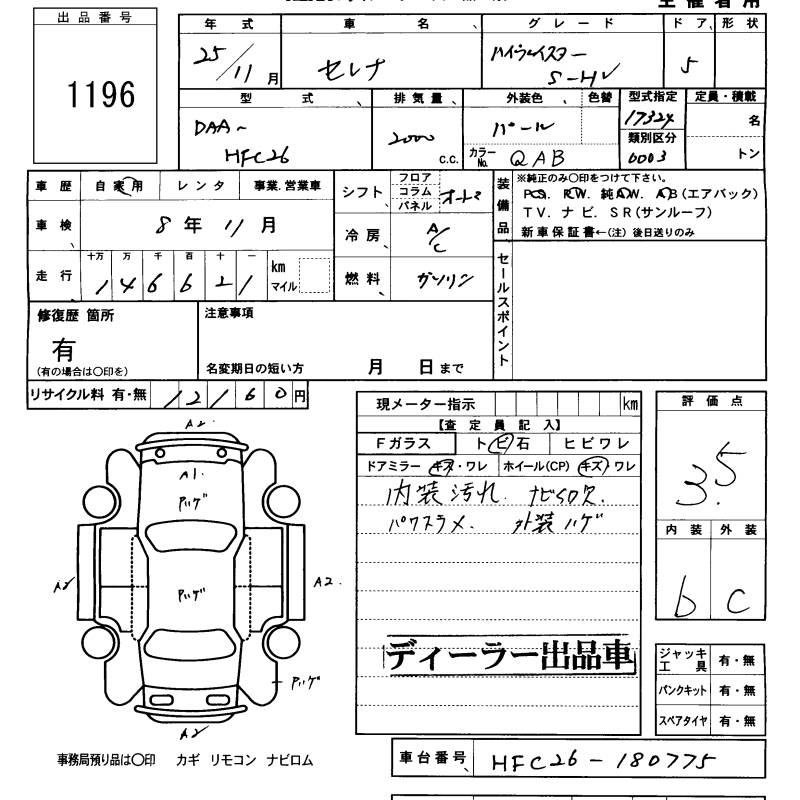 出品番号
1196
年式 車名 グレード ドア 形状
25/11月 セレナ ハイウェイスター S-HV 5
型式 排気量 外装色 色替 型式指定 定員・積載
DAA~ HFC26 2000 c.c. パール 17324 名
カラーNo. QAB 類別区分 0003 トン
車歴 自家用 レンタ 事業.営業車
シフト フロア コラム パネル オートマ
装備品 ※純正のみ〇印をつけて下さい。
P.S. R.W. 純A.W. A.B(エアバック)
T V. ナビ. S R(サンルーフ)
新車保証書←(注) 後日送りのみ
車検 8年 11月
冷房 A/C
走行 十万 万 千 百 十 一
1 4 6 6 2 1 km マイル
燃料 ガソリン
セールスポイント
修復歴 箇所
有
(有の場合は〇印を)
注意事項
名変期日の短い方 月 日まで
リサイクル料 有・無 12160円
現メーター指示 km
【査定員記入】
Fガラス トビ石 ヒビワレ
ドアミラー キズ・ワレ ホイール(CP) キズ・ワレ
内装汚れ. ナビSD欠.
パワスラメ. 外装ハゲ
ディーラー出品車
評価点
3.5
内装 外装
b c
A2
A1
ハゲ
ハゲ
A2
A2.
ハゲ
A2
ジャッキ工具 有・無
パンクキット 有・無
スペアタイヤ 有・無
事務局預り品は〇印 カギ リモコン ナビロム
車台番号 HFC26-180775